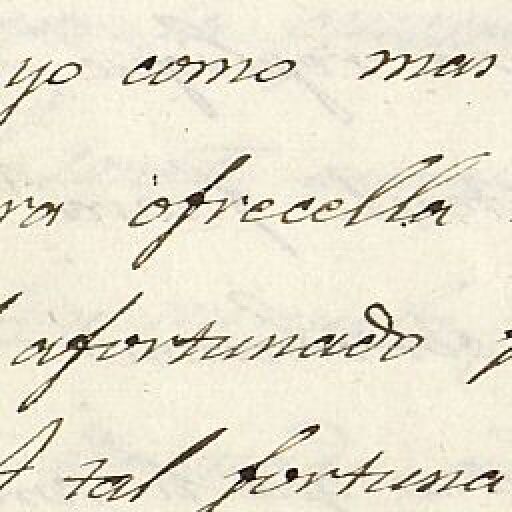 yo como mas
ra ofrecella
afortunado
A tal fortuna